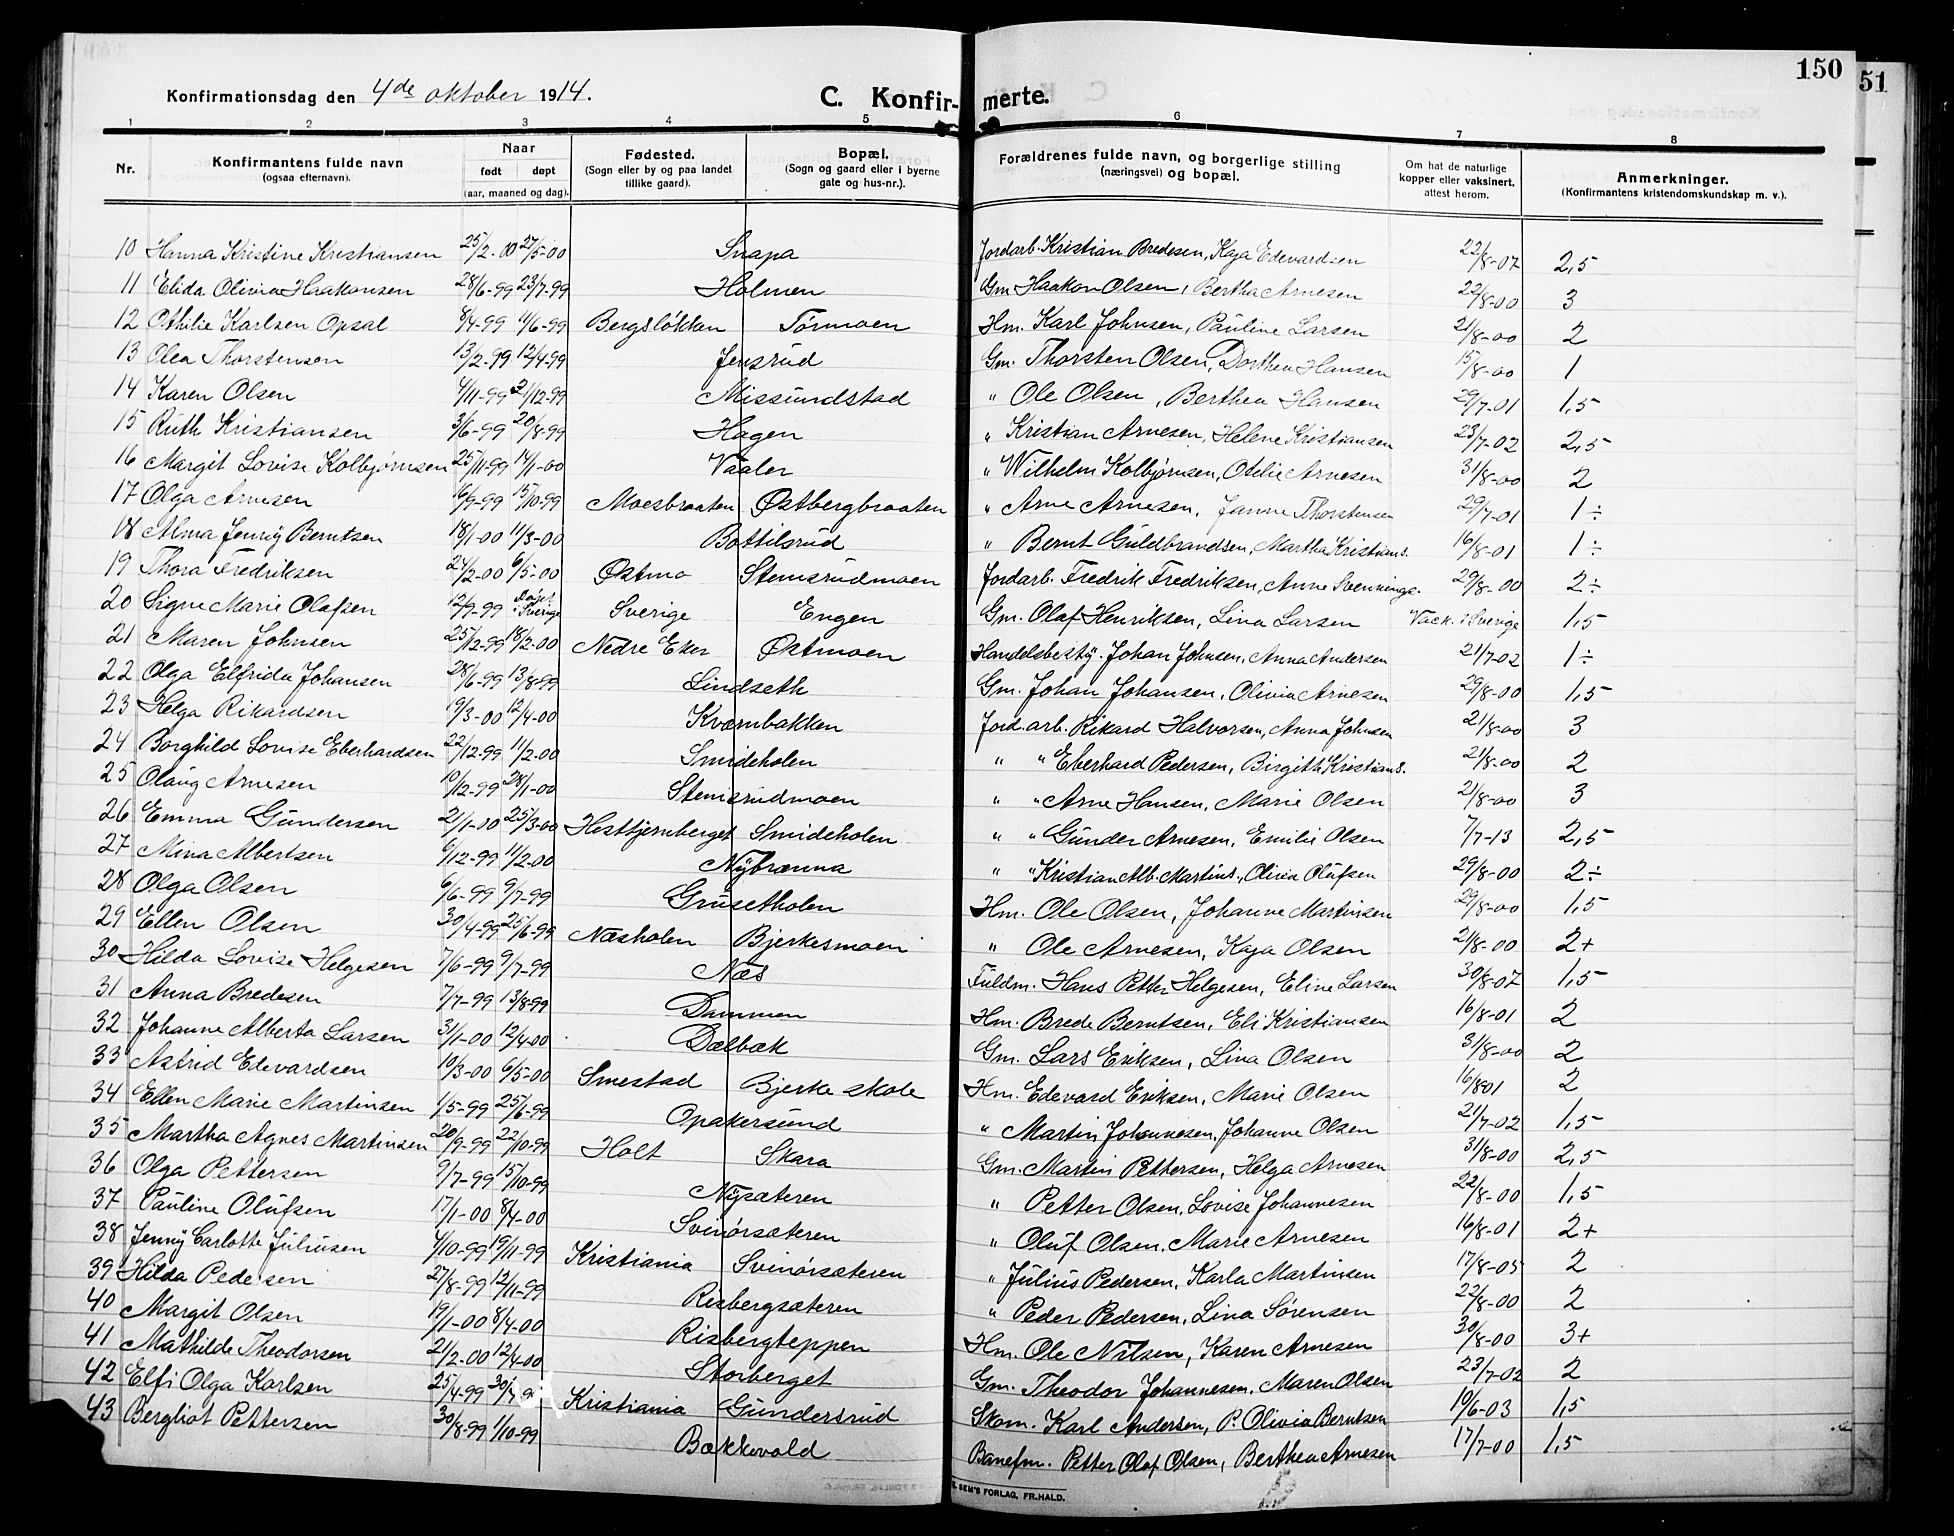 150
51
Konfirmationsdag den 4de oktober 1914.
C. Konfirmerte.
1 2 3 4 5 6 7 8
Nr. Konfirmantens fulde navn (ogsaa efternavn). Naar født døpt (aar, maaned og dag). Fødested. (Sogn eller by og paa landet tillike gaard). Bopæl. (Sogn og gaard eller i byerne gate og hus-nr.). Forældrenes fulde navn, og borgerlige stilling (næringsvei) og bopæl. Om hat de naturlige kopper eller vaksinert, attest herom. Anmerkninger. (Konfirmantens kristendomskundskap m. v.).
10 Hanna Kristine Kristiansen 25/2-00 27/5-00 Snapa Jordarb. Kristian Bredesen, Kaja Edevardsen 22/8-07 2,5
11 Elida Olivia Haakonsen 28/6-99 23/7-99 Holmen Gm. Haakon Olsen, Bertha Arnesen 22/8-00 3
12 Othilie Karlsen Opsal 8/4-99 11/6-99 Bergsløkken Tørmoen Hm. Karl Johnsen, Pauline Larsen 21/8-00 2
13 Olea Thorstensen 13/2-99 12/4-99 Jensrud Gm. Thorsten Olsen, Dorthea Hansen 15/8-00 1
14 Karen Olsen 4/11-99 21/12-99 Missundstad " Ole Olsen, Berthea Hansen 29/7-01 1,5
15 Ruth Kristiansen 3/6-99 20/8-99 Hagen " Kristian Arnesen, Helene Kristiansen 23/7-02 2,5
16 Margit Lovise Kolbjørnsen 25/11-99 14/1-00 Vaaler " Wilhelm Kolbjørnsen, Otelie Arnesen 31/8-00 2
17 Olga Arnesen 16/9-99 15/10-99 Moesbraaten Østbergbraaten " Arne Arnesen, Janne Thorstensen 29/7-01 1÷
18 Alma Jenny Berntsen 18/1-00 11/3-00 Bottilsrud " Bernt Guldbrandsen, Martha Kristians. 16/8-01 1÷
19 Thora Fredriksen 24/2-00 6/5-00 Østmo Stensrudmoen Jordarb. Fredrik Fredriksen, Anne Svennings. 29/8-00 2÷
20 Signe Marie Olafsen 12/9-99 Døpt i Sverige Sverige Engen Gm. Olaf Henriksen, Lina Larsen Vack. i Sverige 1,5
21 Maren Johnsen 25/12-99 18/2-00 Nedre Eker Østmoen Handelsbesty. Johan Johnsen, Anna Andersen 21/7-02 1÷
22 Olga Elfrida Johansen 28/6-99 13/8-99 Lindseth Gm. Johan Johansen, Olivia Arnesen 29/8-00 1,5
23 Helga Rikardsen 19/3-00 12/4-00 Kværnbakken Jord.arb. Rikard Halvorsen, Anna Johnsen 21/8-00 3
24 Borghild Lovise Eberhardsen 22/12-99 11/2-00 Smideholen " " Eberhard Pedersen, Birgitte Kristians. 21/8-00 2
25 Olaug Arnesen 10/12-99 28/1-00 Stensrudmoen " " Arne Hansen, Marie Olsen 21/8-00 3
26 Emma Gundersen 21/1-00 25/3-00 Hesttjernberget Smideholen " " Gunder Arnesen, Emilie Olsen 7/7-13 2,5
27 Mina Albertsen 6/12-99 11/2-00 Nybrænna " " Kristian Alb. Martins., Olivia Olufsen 29/8-00 2÷
28 Olga Olsen 6/6-99 9/7-99 Grusetholen Hm. Ole Olsen, Johanne Martinsen 29/8-00 1,5
29 Ellen Olsen 30/4-99 25/6-99 Næsholen Bjerkesmoen " Ole Arnesen, Kaja Olsen 21/8-00 2+
30 Hilda Lovise Helgesen 7/6-99 9/7-99 Næs Fuldm. Hans Petter Helgesen, Eline Larsen 30/8-07 1,5
31 Anna Bredesen 7/7-99 13/8-99 Dammen Hm. Brede Berntsen, Eli Kristiansen 16/8-01 2
32 Johanne Alberta Larsen 31/1-00 12/4-00 Dælbæk Gm. Lars Eriksen, Lina Olsen 31/8-00 2
33 Astrid Edevardsen 10/3-00 6/5-00 Smestad Bjerke skole Hm. Edevard Eriksen, Marie Olsen 16/801 2
34 Ellen Marie Martinsen 1/5-99 25/6-99 Opakersund " Martin Johannesen, Johanne Olsen 21/7-02 1,5
35 Martha Agnes Martinsen 20/9-99 22/10-99 Holt Skara Gm. Martin Pettersen, Helga Arnesen 31/8-00 2,5
36 Olga Pettersen 9/7-99 15/10-99 Nysæteren " Petter Olsen, Lovise Johannesen 22/8-00 1,5
37 Pauline Olufsen 17/1-00 8/4-00 Svinørsæteren " Oluf Olsen, Marie Arnesen 16/8-01 2+
38 Jenny Carlotte Juliusen 4/10-99 19/11-99 Kristiania Svinørsæteren " Julius Pedersen, Karla Martinsen 17/8-05 2
39 Hilda Pedersen 27/8-99 12/11-99 Risbergsæteren " Peder Pedersen, Lina Sørensen 22/8-00 2
40 Margit Olsen 19/1-00 8/4-00 Risbergteppen Hm. Ole Nilsen, Karen Arnesen 30/8-00 3+
41 Mathilde Theodorsen 21/2-00 12/4-00 Storberget Gm. Theodor Johannesen, Maren Olsen 23/7-02 2
42 Elfi Olga Karlsen 25/4-99 30/7 Kristiania Gundersrud Skom. Karl Andersen, P. Olivia Berntsen 10/6-03 1,5
43 Bergliot Pettersen 30/8-99 1/10-99 Bækkevold Banefm. Petter Olaf Olsen, Berthea Arnesen 17/7-00 1,5
SEM'S FORLAG, FR.HALD.